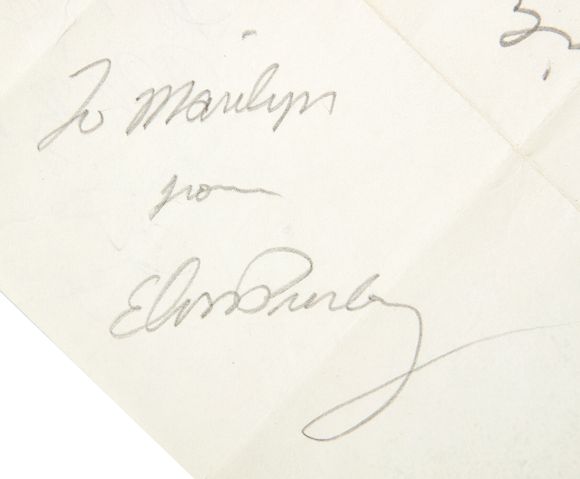 To Marilyn
from
Elvis Presley